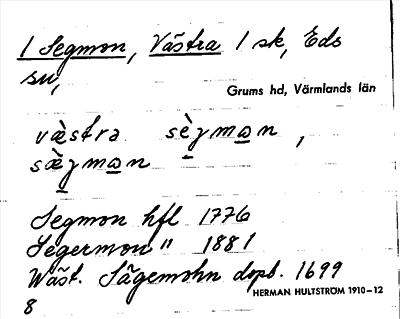 1 Segmon, Västra 1 sk, Eds
su,
Grums hd, Värmlands län
væ̀stra sèɡmo̲n,
sæ̀ɡmo̲n
Segmon hfl 1776
Segermon " 1881
Wäst. Sägemohn dopb. 1699
HERMAN HULTSTRÖM 1910-12
8